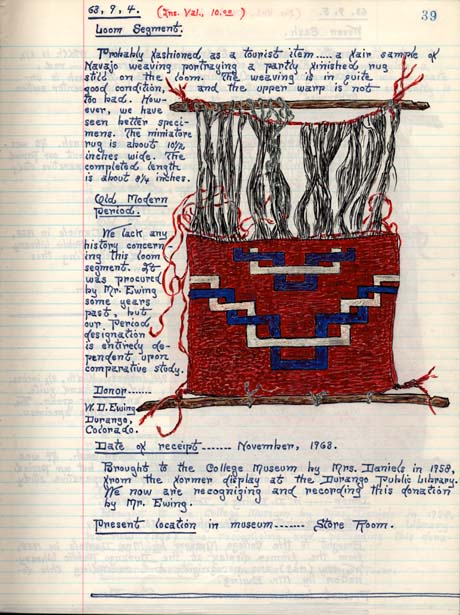 63, 9, 4. (Ins. Val., 10.00)
39
Loom Segment.
Probably fashioned, as a tourist item....a fair sample of
Navajo weaving portraying a partly finished rug
still on the loom. The weaving is in quite
good condition, and the upper warp is not
too bad. How-
ever, we have
seen better speci-
mens. The miniature
rug is about 10 1/2
inches wide. The
completed length
is about 8 1/4 inches.
Old Modern
Period.
We lack any
history concern
ing this loom
segment. It
was procured
by Mr. Ewing
some years
past, but
our period
designation
is entirely de-
pendent upon
comparative study.
Donor.......
W. D. Ewing
Durango,
Colorado.
Date of receipt....... November, 1963.
Brought to the College Museum by Mrs. Daniels in 1958,
from the former display at the Durango Public Library.
We now are recogniging and recording this donation
by Mr. Ewing.
Present location in museum....... Store Room.